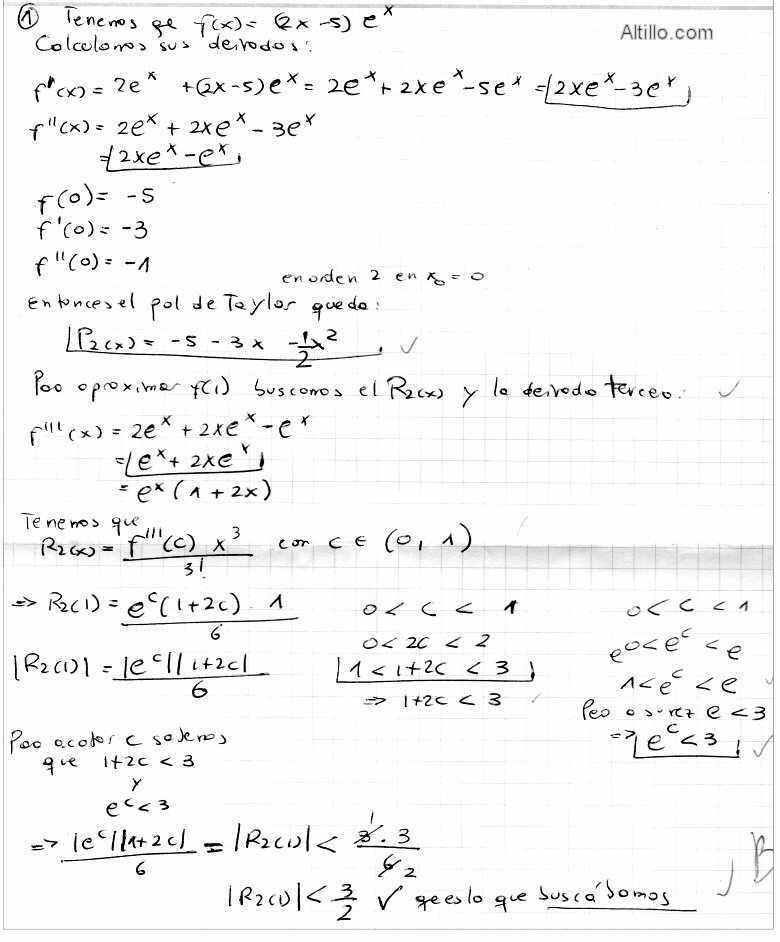 ① Tenemos qe f(x) = (2x -5) e^x
Altillo.com
Calculamos sus derivadas:
f'(x) = 2e^x + (2x-5)e^x = 2e^x + 2xe^x - 5e^x = 2xe^x - 3e^x
f''(x) = 2e^x + 2xe^x - 3e^x
= 2xe^x - e^x
f(0) = -5
f'(0) = -3
f''(0) = -1
en orden 2 en x₀ = 0
Entonces el pol de Taylor queda:
P₂(x) = -5 - 3x - 1/2 x² ✓
Para aproximar f(1) buscamos el R₂(x) y la derivada tercera: ✓
f'''(x) = 2e^x + 2xe^x - e^x
= e^x + 2xe^x
= e^x (1 + 2x)
Tenemos que
R₂(x) = f'''(c) x³ / 3! con c ∈ (0, 1)
=> R₂(1) = e^c (1+2c) · 1 / 6
|R₂(1)| = |e^c| |1+2c| / 6
0 < c < 1
0 < 2c < 2
1 < 1+2c < 3
=> 1+2c < 3
0 < c < 1
e^0 < e^c < e
1 < e^c < e
Pero a su vez e < 3
=> e^c < 3 ✓
Para acotar c sabemos
que 1+2c < 3
y
e^c < 3
=> |e^c| |1+2c| / 6 = |R₂(1)| < 3 · 3 / 6 1 2
|R₂(1)| < 3/2 ✓ qe es lo que buscábamos
B